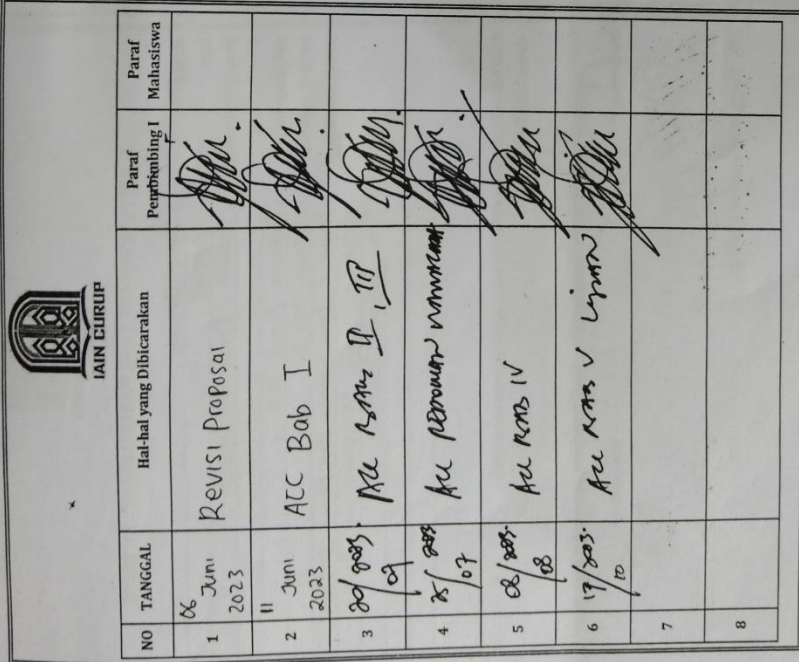 IAIN CURUP
NO TANGGAL Hal-hal yang Dibicarakan Paraf Pembimbing I Paraf Mahasiswa
1 06 Juni 2023 Revisi Proposal
2 11 Juni 2023 ACC Bab I
3 20/2023 07 Acc BAB II, III
4 25/2023 07 Acc PEDOMAN WAWANCARA
5 08/2023 08 Acc BAB IV
6 17/2023 10 Acc BAB V
7
8